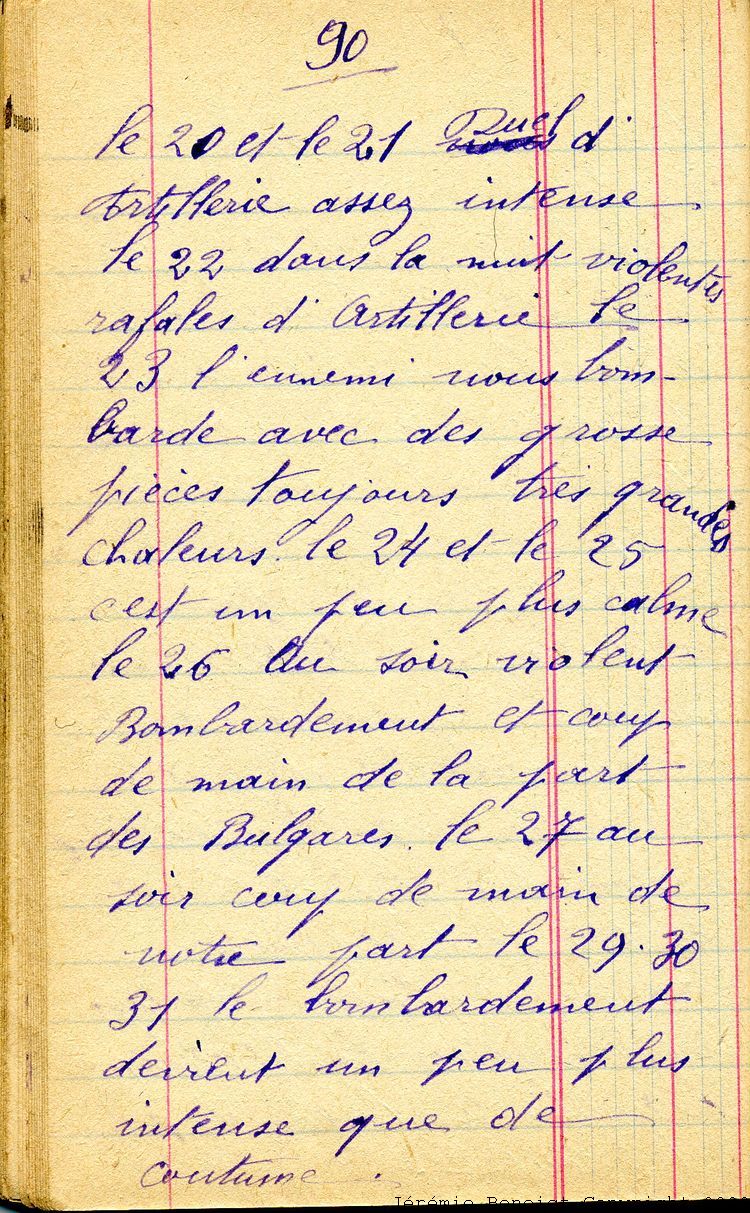 90
le 20 et le 21 Duel d'
Artillerie assez intense
le 22 dans la nuit violentes
rafales d'Artillerie le
23 l'ennemi nous bom-
barde avec des grosse
pièces toujours très grandes
chaleurs. le 24 et le 25
c'est un peu plus calme
le 26 Au soir violent
Bombardement et coup
de main de la part
des Bulgares. le 27 au
soir coup de main de
notre part le 29. 30
31 le bombardement
devient un peu plus
intense que de
coutume.
Jérémie Benoist Copyright